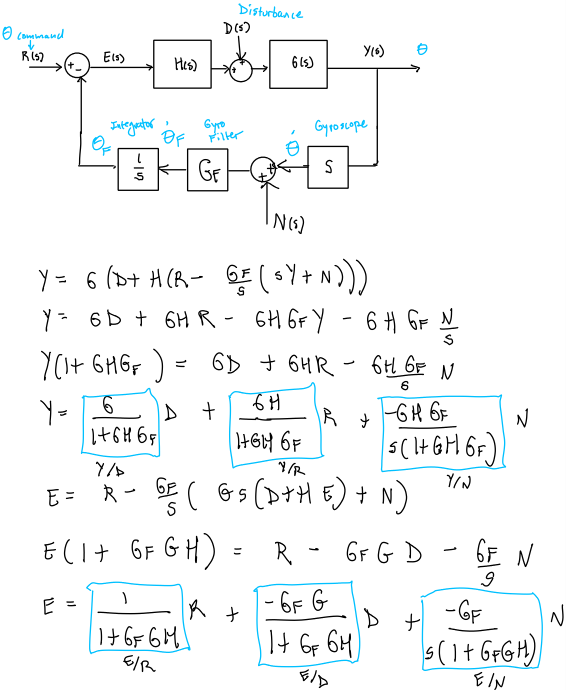 Disturbance
θ command
D(s)
R(s) + - E(s) H(s) + + G(s) Y(s) θ
Integrator θ̇_F Gyro Filter Gyroscope
θ_F 1/s G_F + + θ̇ S
N(s)
Y = G (D + H(R - G_F/s (sY + N)))
Y = GD + GHR - GHG_FY - GHG_F N/s
Y(1+GHG_F) = GD + GHR - GHG_F/s N
Y = G/(1+GHG_F) D + GH/(1+GHG_F) R + -GHG_F/(s(1+GHG_F)) N
Y/D Y/R Y/N
E = R - G_F/s (Gs(D+HE) + N)
E(1 + G_FGH) = R - G_FGD - G_F/s N
E = 1/(1+G_FGH) R + -G_FG/(1+G_FGH) D + -G_F/(s(1+G_FGH)) N
E/R E/D E/N